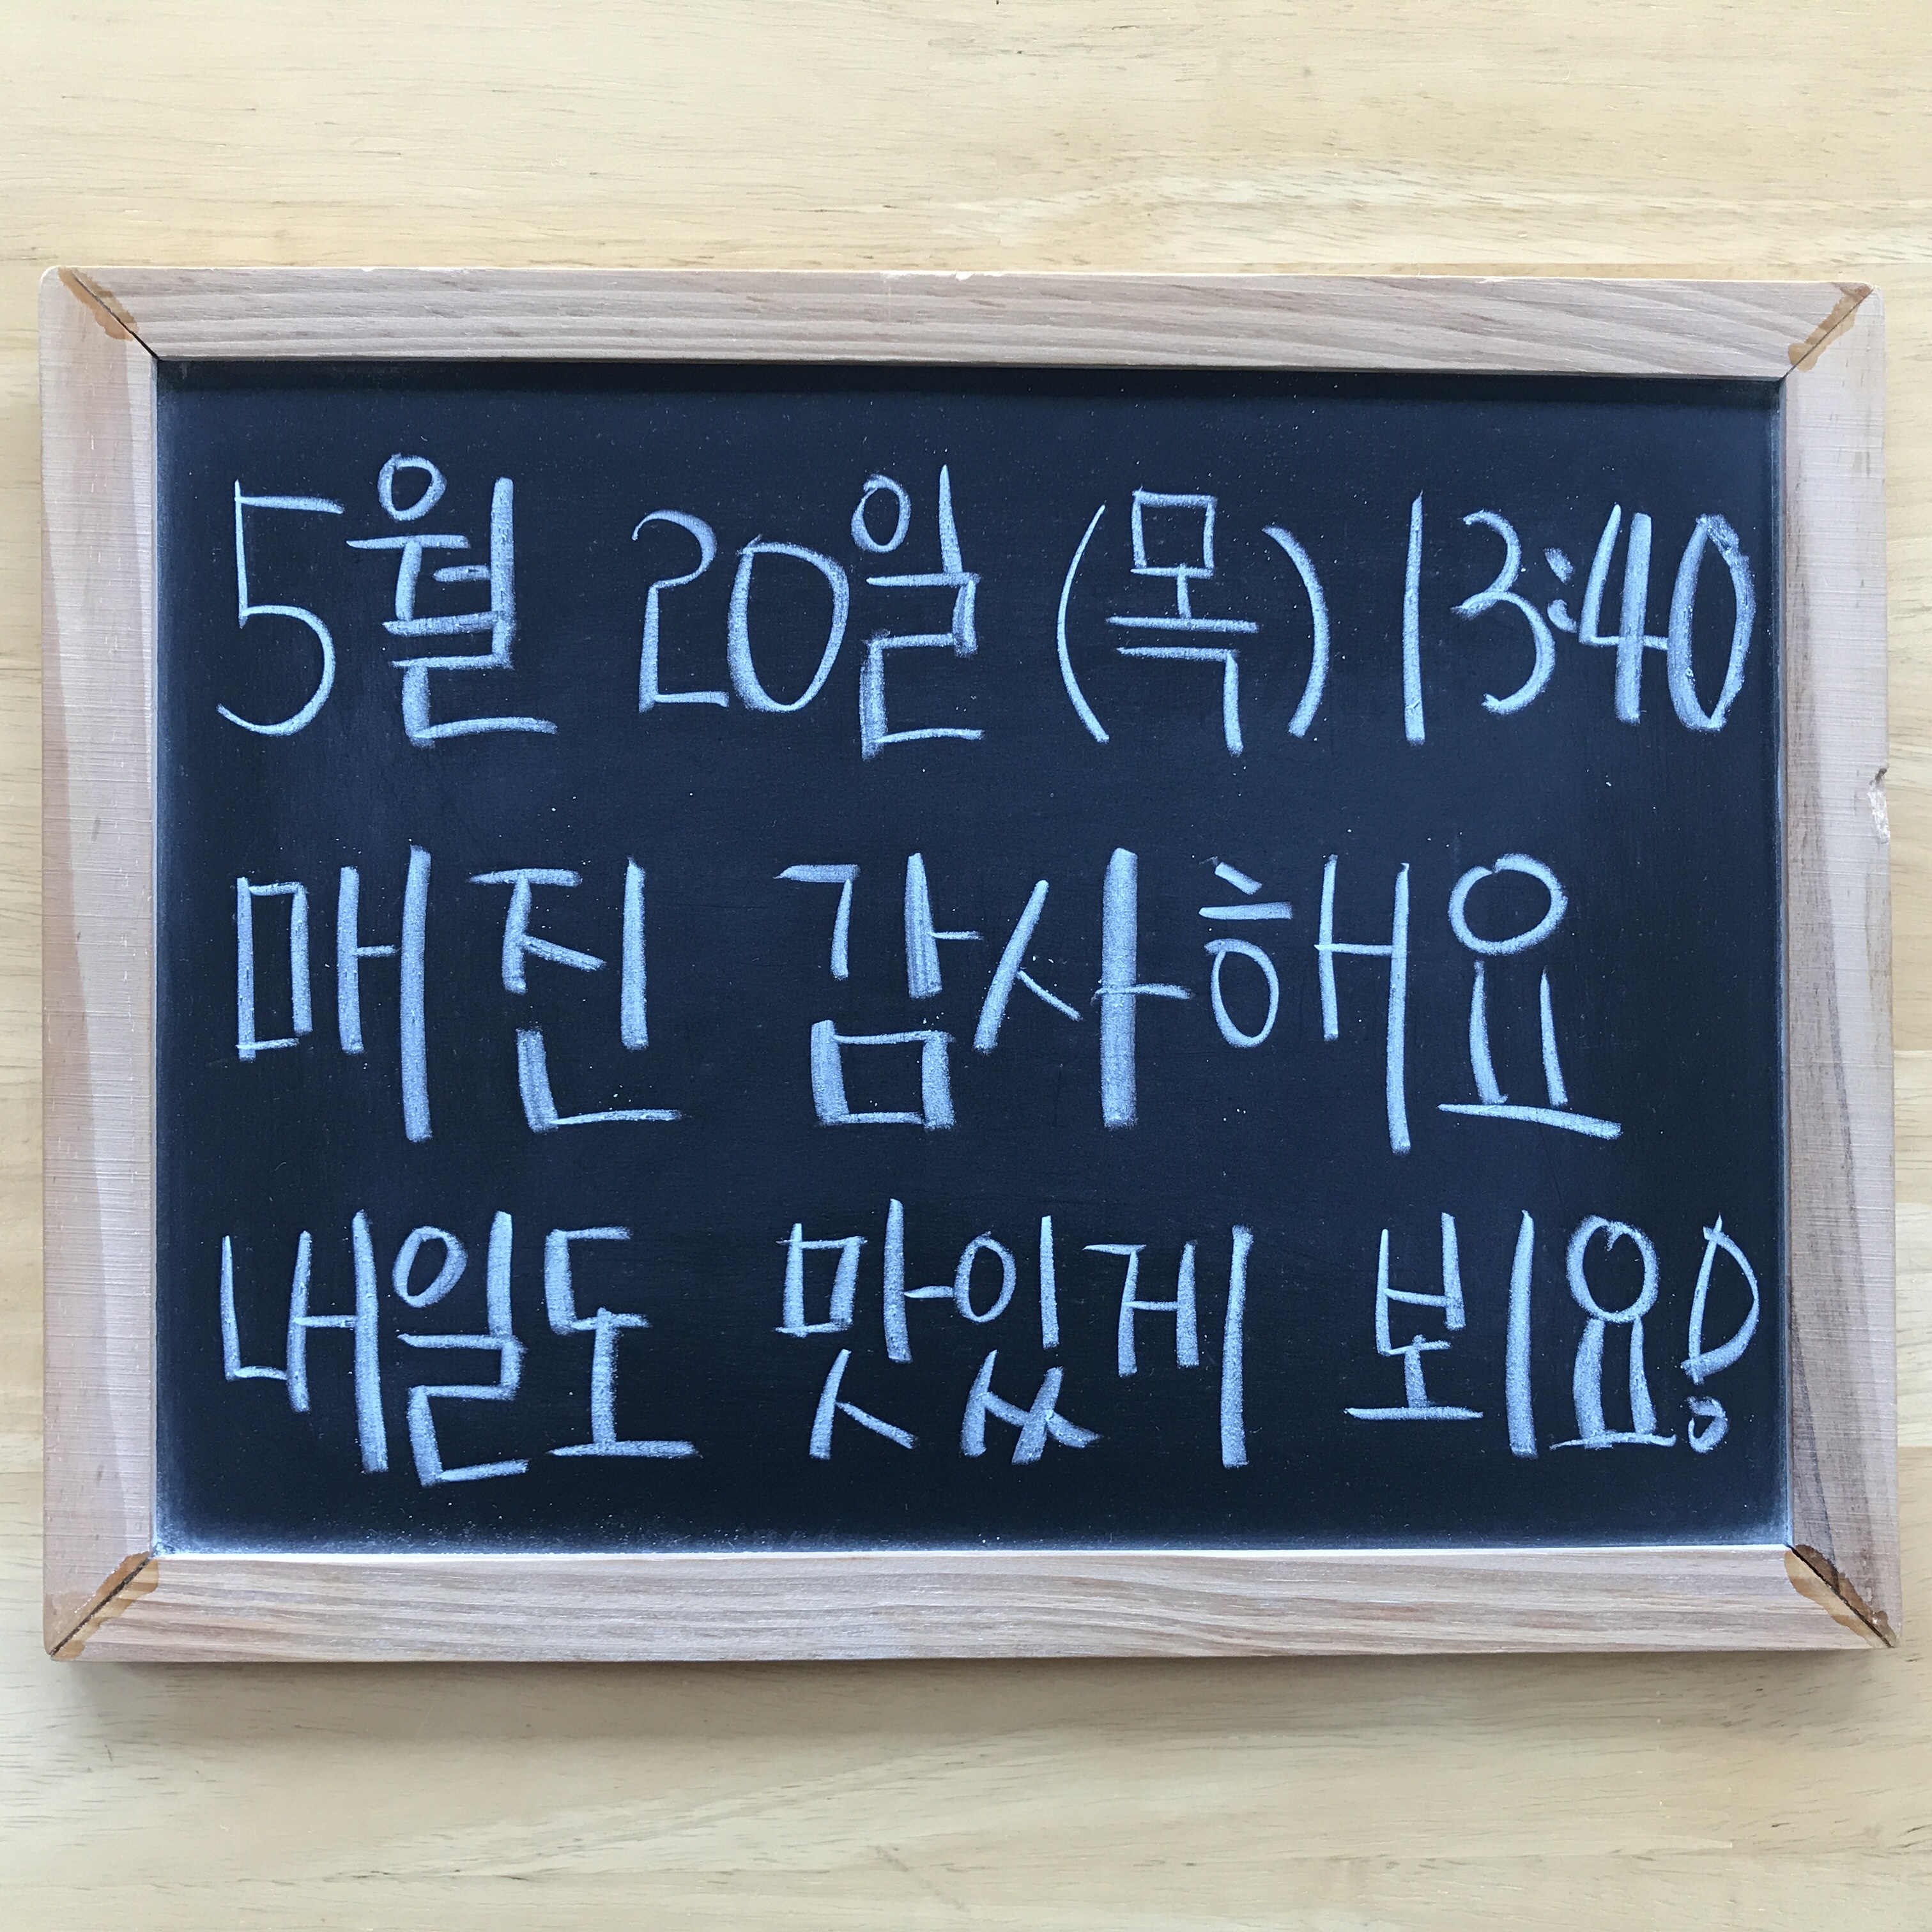 5월 20일 (목) 13:40
매진 감사해요
내일도 맛있게 뵈요!